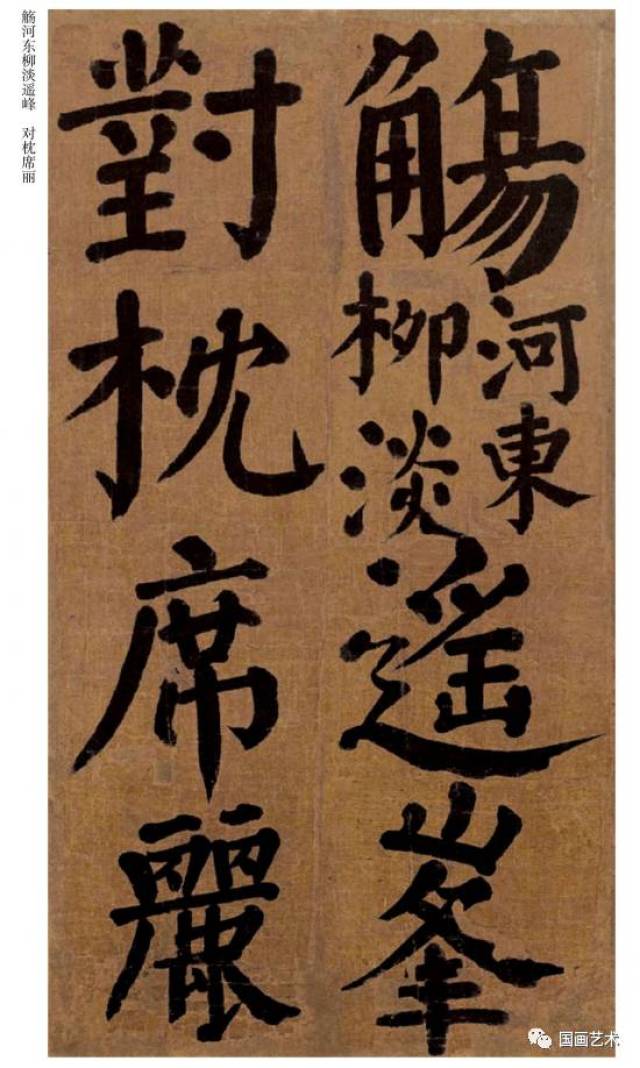 觴河東柳淡遥峯
對枕席麗
觞河东柳淡遥峰 对枕席丽
国画艺术